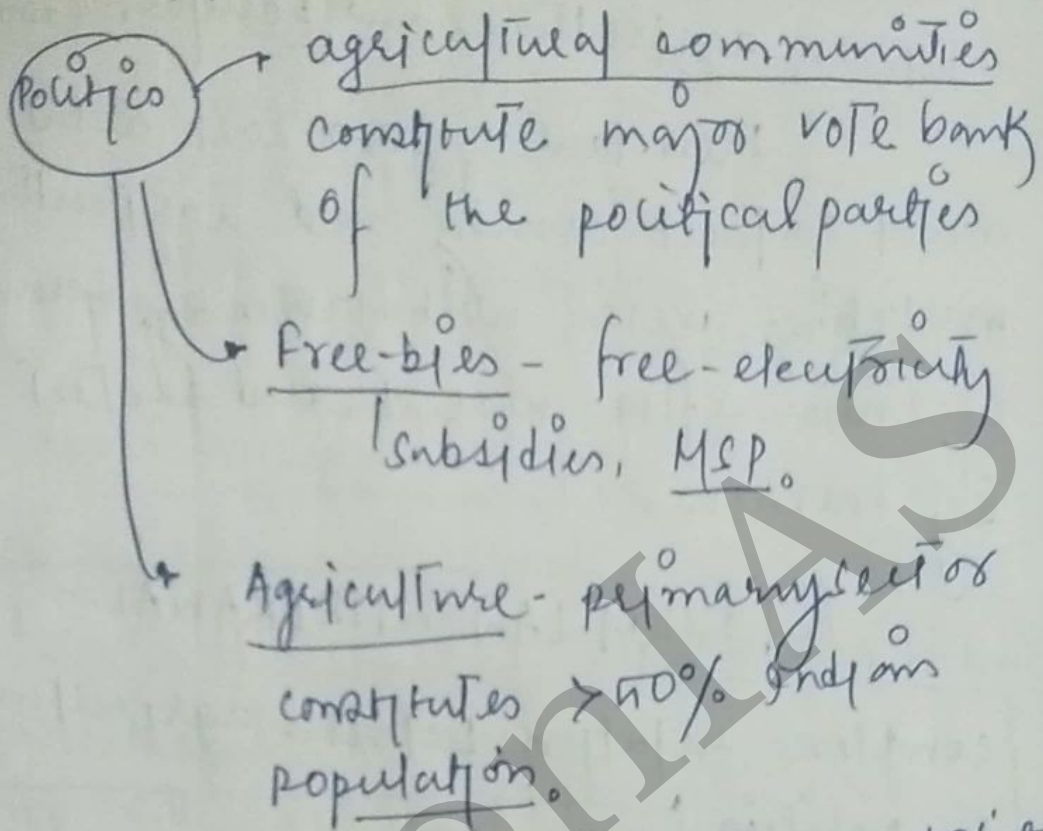 Politics
agricultural communities
constitute major vote bank
of the political parties
Free-bies - free-electricity
subsidies, MSP.
Agriculture - primary sector
constitutes > 50% Indians
population.
onIAS